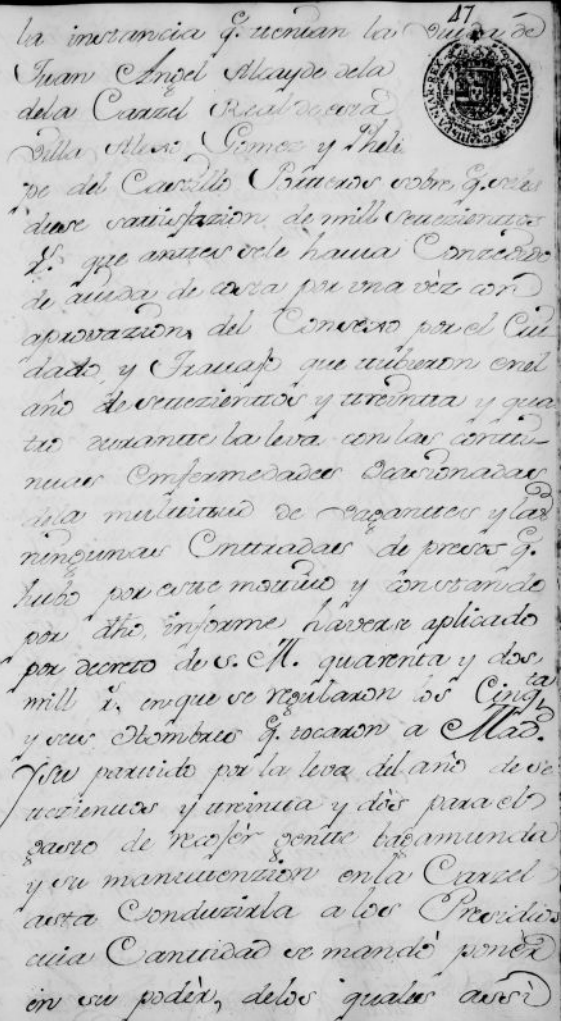 47
la instancia q. tenian la Viuda de
Juan Angel Alcayde dela
dela Carzel Real de esta
Villa Alexo Gomez y Pheli
pe del Castillo Porteros sobre q. seles
diese satisfazion de mill setezienttos
rs. que anttes sele hauia Conzedido
de aiuda de costa por vna vèz con
aprovazion del Consexo por el Cui
dado, y Trauajo que tubieron enel
año de setezienttos y treintta y qua
tro durantte la leva con las conti-
nuas enfermedades Ocasionadas
dela multitud de vagantes y las
ningunas Enttradas de presos q.
hubo por este mottiuo y constando
por dho, informe hàverse aplicado
por decreto de S. M. quarenta y dos
mill rs. en que se regularon los Cinqta.
y seis Hombres q. tocaron a Mad.
y su partido por la leva del año de se
tezientos y treintta y dòs para el
gasto de recojèr gentte bagamunda
y su manutenzion en la Carzel
asta Conduzirla a los Presidios
cuia Canttidad se mandò ponèr
en su podèr, delos quales assi
PHILIPPUS V D G HISPANIAR REX